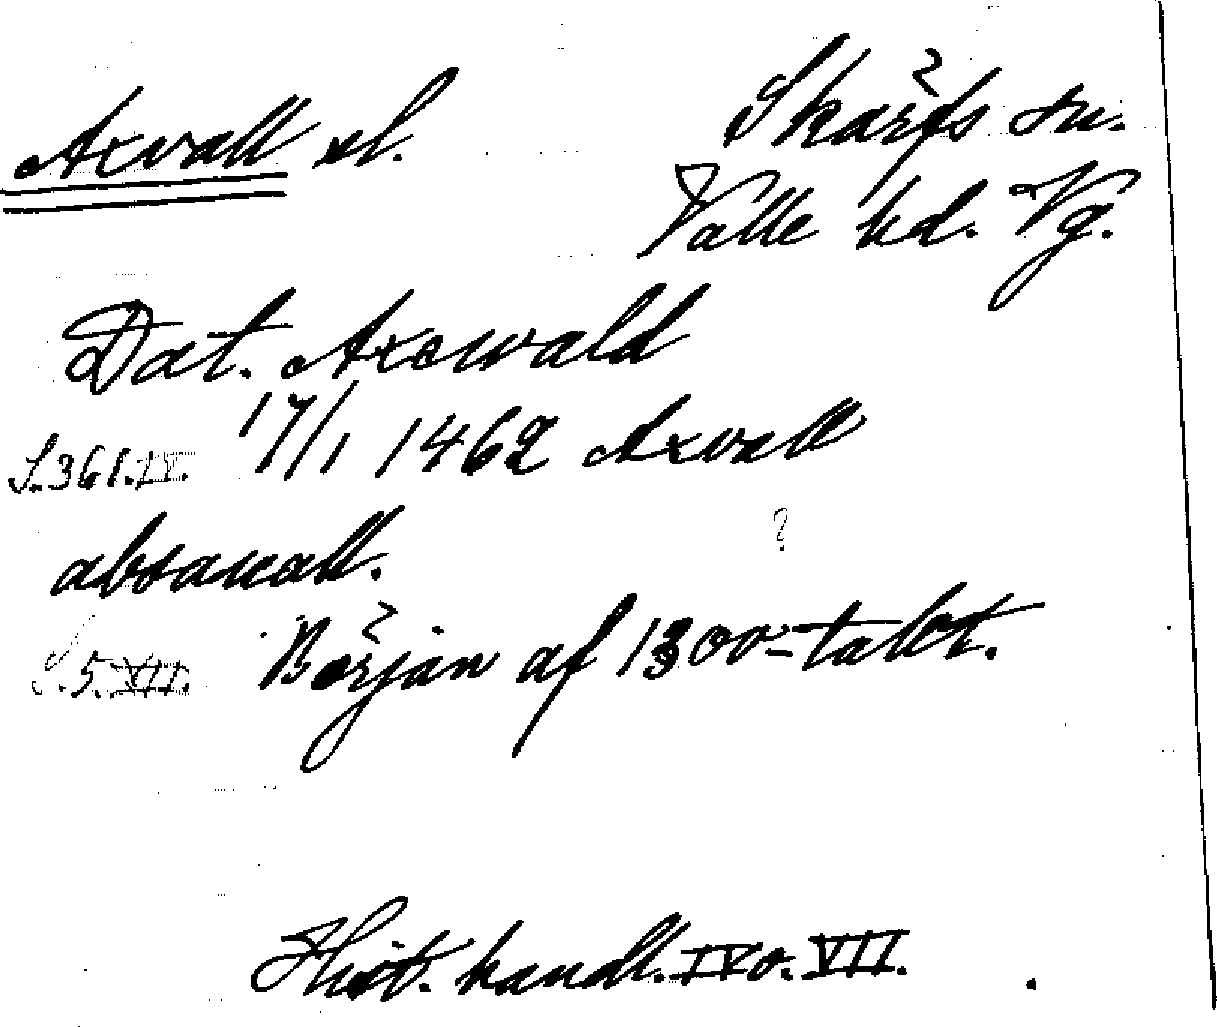 Axvall sl.
Skärfs sn.
Valle hd. Vg.
Dat. Axewald
S. 361. IV. 17/1 1462 Axvall
?
S. 5. VII. Början af 1300-talet.
Hist. handl. IV o. VII.